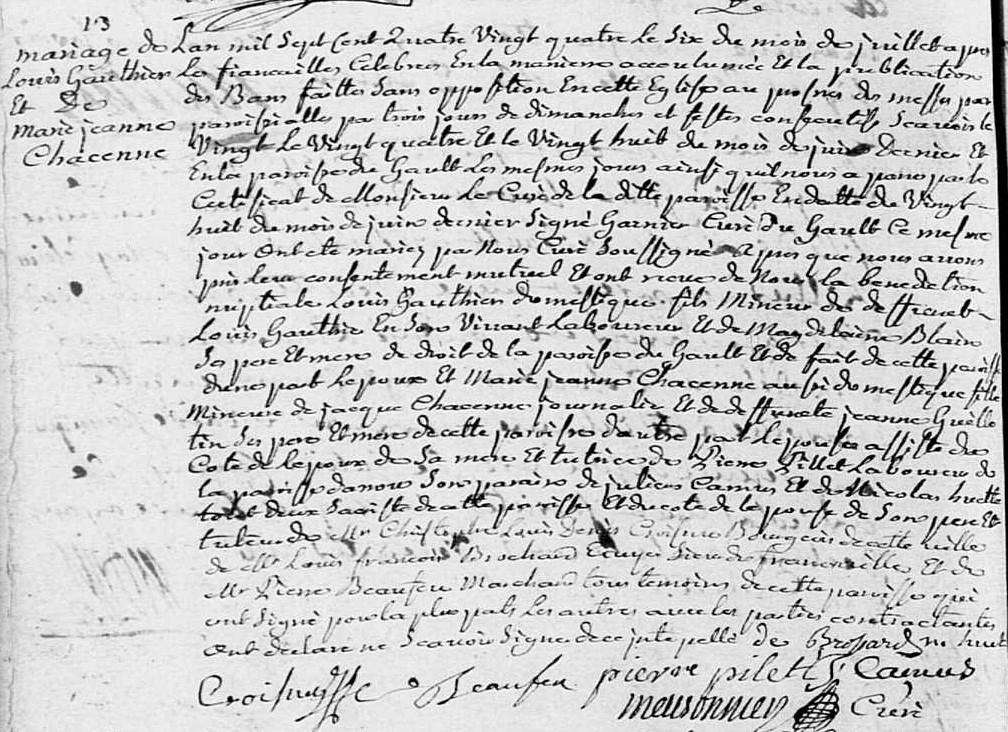 13
mariage de
Louis Gauthier
Et De
marie jeanne
Chacenne
Lan mil Sept Cent Quatre Vingt quatre le Six du mois de juillet apres
Les fiancailles Celebres En la maniere accoutumée Et la publication
des Bans faittes Sans opposition En cette Eglise au prosnes des messes par
paroissialles par trois jours de dimanches et festes consecutifs Scavoir le
Vingt le Vingt quatre Et le Vingt huit du mois de juin Dernier Et
En la paroisse du Gault Les mesmes jours ainsi quil nous a paru par le
Certificat de Monsieur Le Curé de la ditte paroisse En datte du Vingt
huit du mois de juin dernier Signé Garnier Curé Du Gault Ce mesme
jour Ont eté mariez par Nous Curé Soussigné Apres que nous avons
pris leur consentement mutuel Et ont recue de Nous la benediction
nuptiale Louis Gauthier domestique fils Mineur de deffunct
Louis Gauthier En Son Vivant Laboureur Et de Magdelaine Blain
Ses pere Et mere de droit de la paroisse du Gault Et de fait de cette paroisse
dune part Lepoux Et Marie jeanne Chacenne aussi domestique fille
Mineure de jacque Chacenne journalier Et de deffuncte jeanne Guillo
tin Ses pere Et mere de cette paroisse dautre part Lepouse assisté du
Coté de Lepoux de Sa mere Et tutrice de Pierre Pillet Laboureur de
la paroisse Son parain de julien Camus Et de Nicolas huette
tout deux Sacriste de cette paroisse Et du coté de lepouse de Son pere Et
tuteur de Mr Christophe Louis Denis Bourgeois de cette ville
de Mr Louis francois Brochard Ecuyer Sieur de Et de
Mr Pierre Beaufeu Marchand tous temoins de cette paroisse qui
ont Signé pour la plus part Les autres avec les parties contractantes
ont declaré ne Scavoir Signer de ce De Brossard
Beaufeu pierre pilett Camus
meusonnier Curé